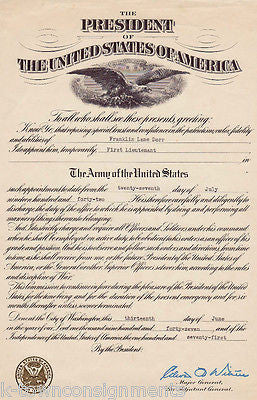 THE
PRESIDENT
OF
THE UNITED STATES OF AMERICA
To all who shall see these presents, greeting:
Know Ye, that reposing special trust and confidence in the patriotism, valor, fidelity
and abilities of Franklin Lane Dorr
I do appoint him, temporarily, First Lieutenant
in
The Army of the United States
such appointment to date from the twenty-seventh day of July
nineteen hundred and forty-two He is therefore carefully and diligently to
discharge the duty of the office to which he is appointed by doing and performing all
manner of things thereunto belonging.
And I do strictly charge and require all Officers and Soldiers under his command
when he shall be employed on active duty to be obedient to him as an officer of his
grade and position. And he is to observe and follow such orders and directions, from
time to time, as he shall receive from me, or the future President of the United States of
America, or the General or other Superior Officers set over him, according to the rules
and discipline of War.
This Commission to continue in force during the pleasure of the President of the United
States for the time being, and for the duration of the present emergency and for six
months thereafter unless sooner terminated.
Done at the City of Washington, this thirteenth day of June
in the year of our Lord one thousand nine hundred and forty-seven and of the
Independence of the United States of America the one hundred and seventy-first
By the President:
Major General,
The Adjutant General.
k-townconsignments